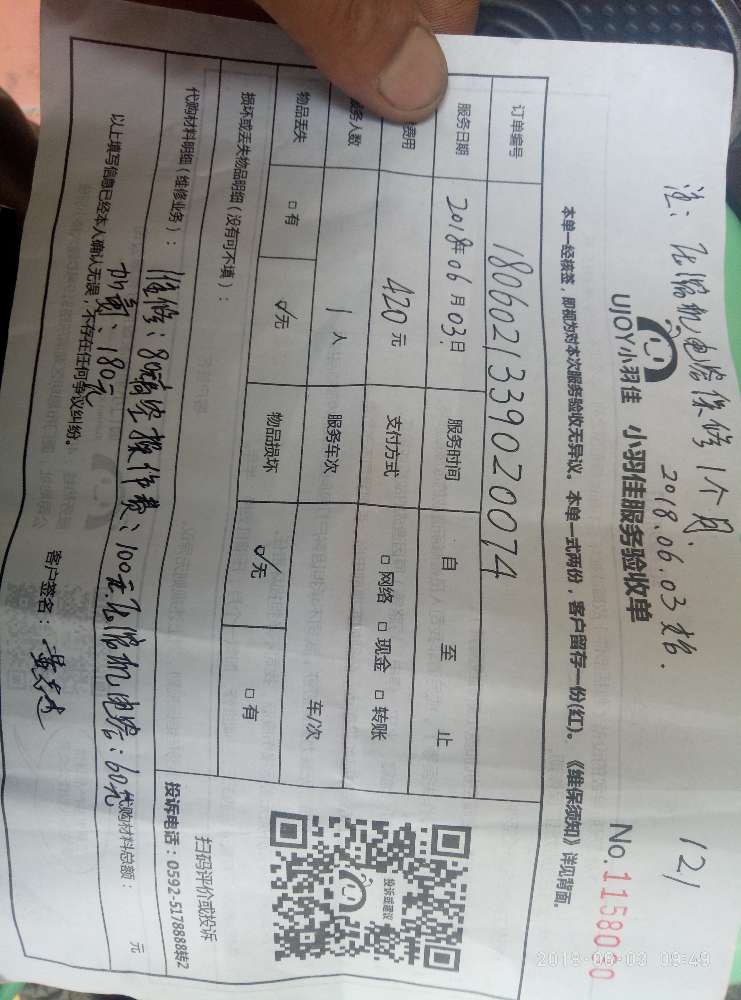 注：压缩机电容保修1个月.
2018.06.03
121
UJOY小羽佳 小羽佳服务验收单
No.1158060
本单一经核签，即视为对本次服务验收无异议。本单一式两份，客户留存一份(红)。《维保须知》详见背面。
订单编号 1806021339020074
服务日期 2018年06月03日 服务时间 自 至 止
费用 420元 支付方式 □网络 □现金 □转账
人数 1人 服务车次 车/次
物品丢失 □有 ☑无 物品损坏 ☑无 □有
损坏或丢失物品明细（没有可不填）：
代购材料明细（维修业务）： 维修：8 空操作费：100元 压缩机电容：60元
180元
代购材料总额： 元
以上填写信息已经本人确认无误，不存在任何争议纠纷。 客户签名：
投诉或建议
扫码评价或投诉
投诉电话：0592-5178888转2
2018-06-03 09:49